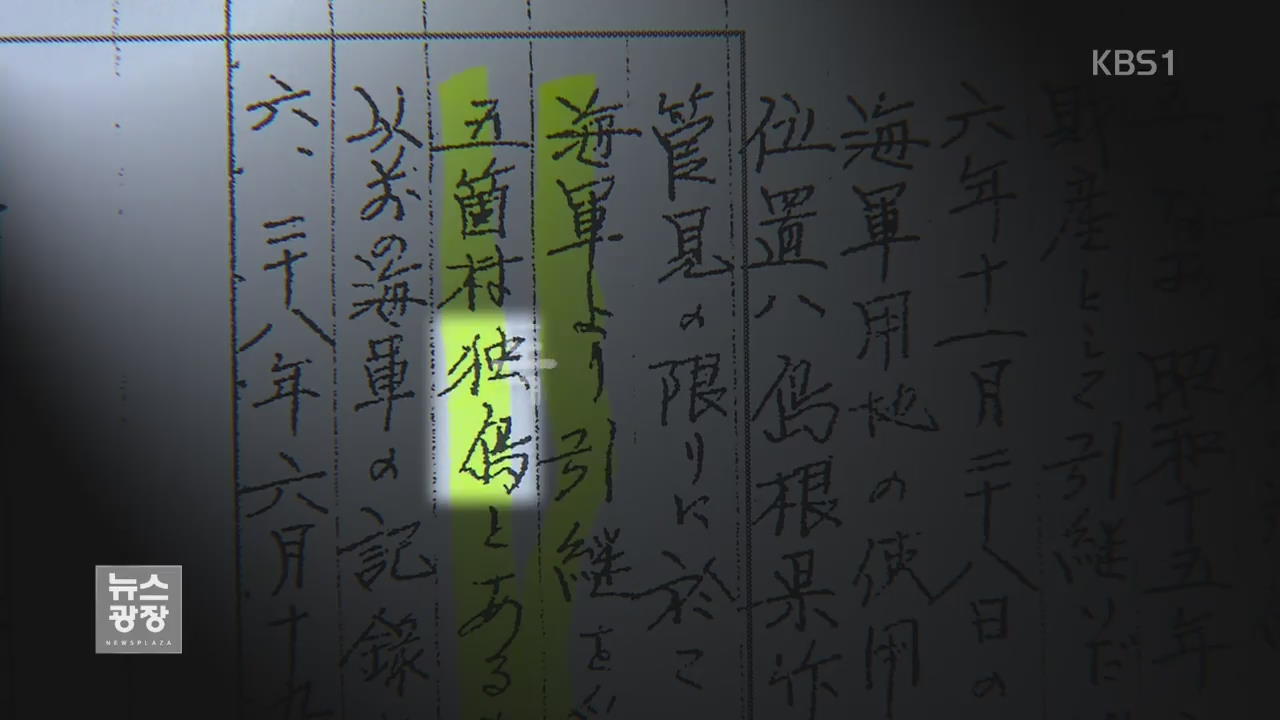 KBS1
昭和十五年
財産として引継いだ
六年十一月二十八日の
海軍用地の使用
位置ハ島根県
管見の限りに於て
海軍より引継を
五箇村独島とある
以前の海軍の記録
六、二十八年六月十九
뉴스
광장
NEWSPLAZA